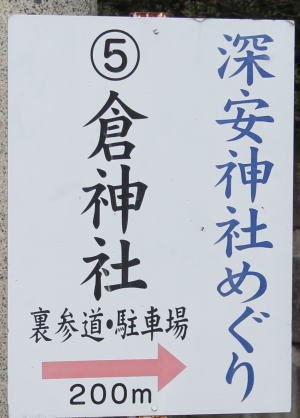 深安神社めぐり
⑤
倉神社
裏参道・駐車場
200m